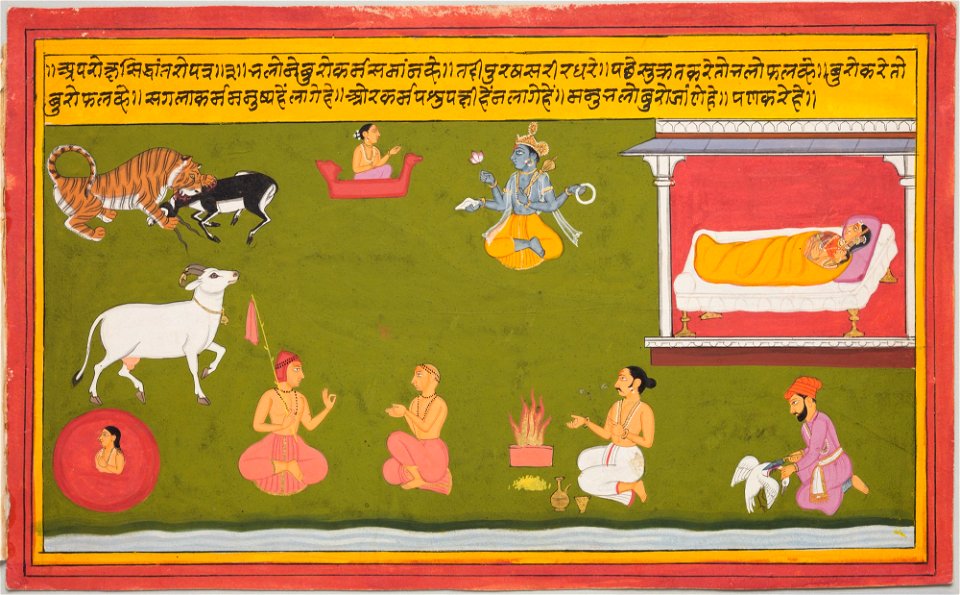 ॥अपरोक्षसिद्धांतरोपत्र॥३॥ भलोनेबुरोकर्मसमांनव्है॥ तदीपुरषसरीरधरे॥ पछैसुक्रतकरेतोभलोफलव्है॥ बुरोकरेतो
बुरोफलव्है॥ सगलाकर्ममनुष्यहेंलागेहे॥ ओरकर्मपशुपक्षीहेंनलागेहें॥ भलोबुरोजांणेहे॥ पणकरेहे॥